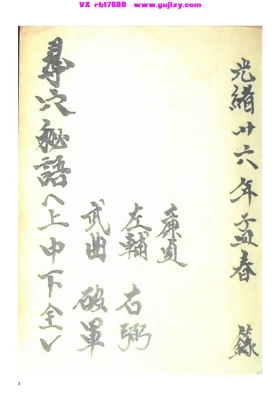 VX rbt7688 www.gujizy.com
光緒廿六年孟春 錄
廉貞
左輔 右弼
武曲 破軍
尋穴秘語〈上中下全〉
3